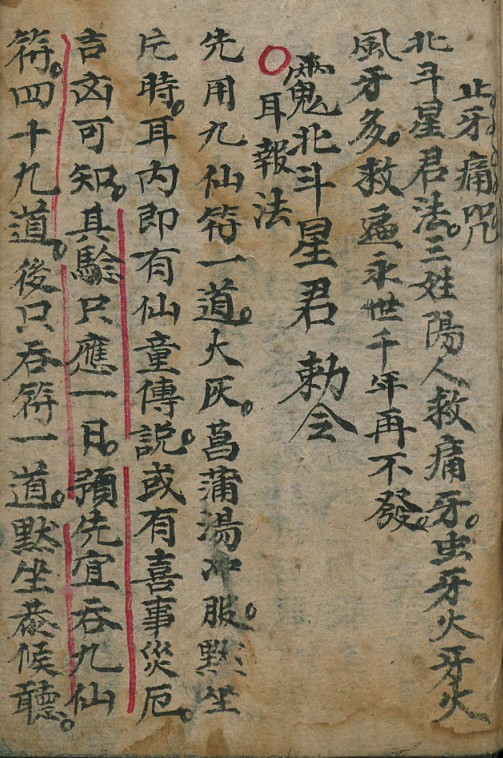 止牙痛咒
北斗星君法。三姓陽人救痛牙。虫牙火牙火
風牙多。救逼永世千年再不發。
北斗星君 勅令
〇耳報法
先用九仙符一道。火灰。菖蒲湯冲服。默坐
片時。耳内即有仙童傳説。或有喜事災厄。
吉凶可知。其驗只應一日。預先宜吞九仙
符。四十九道。後只吞符一道。默坐恭候聽。